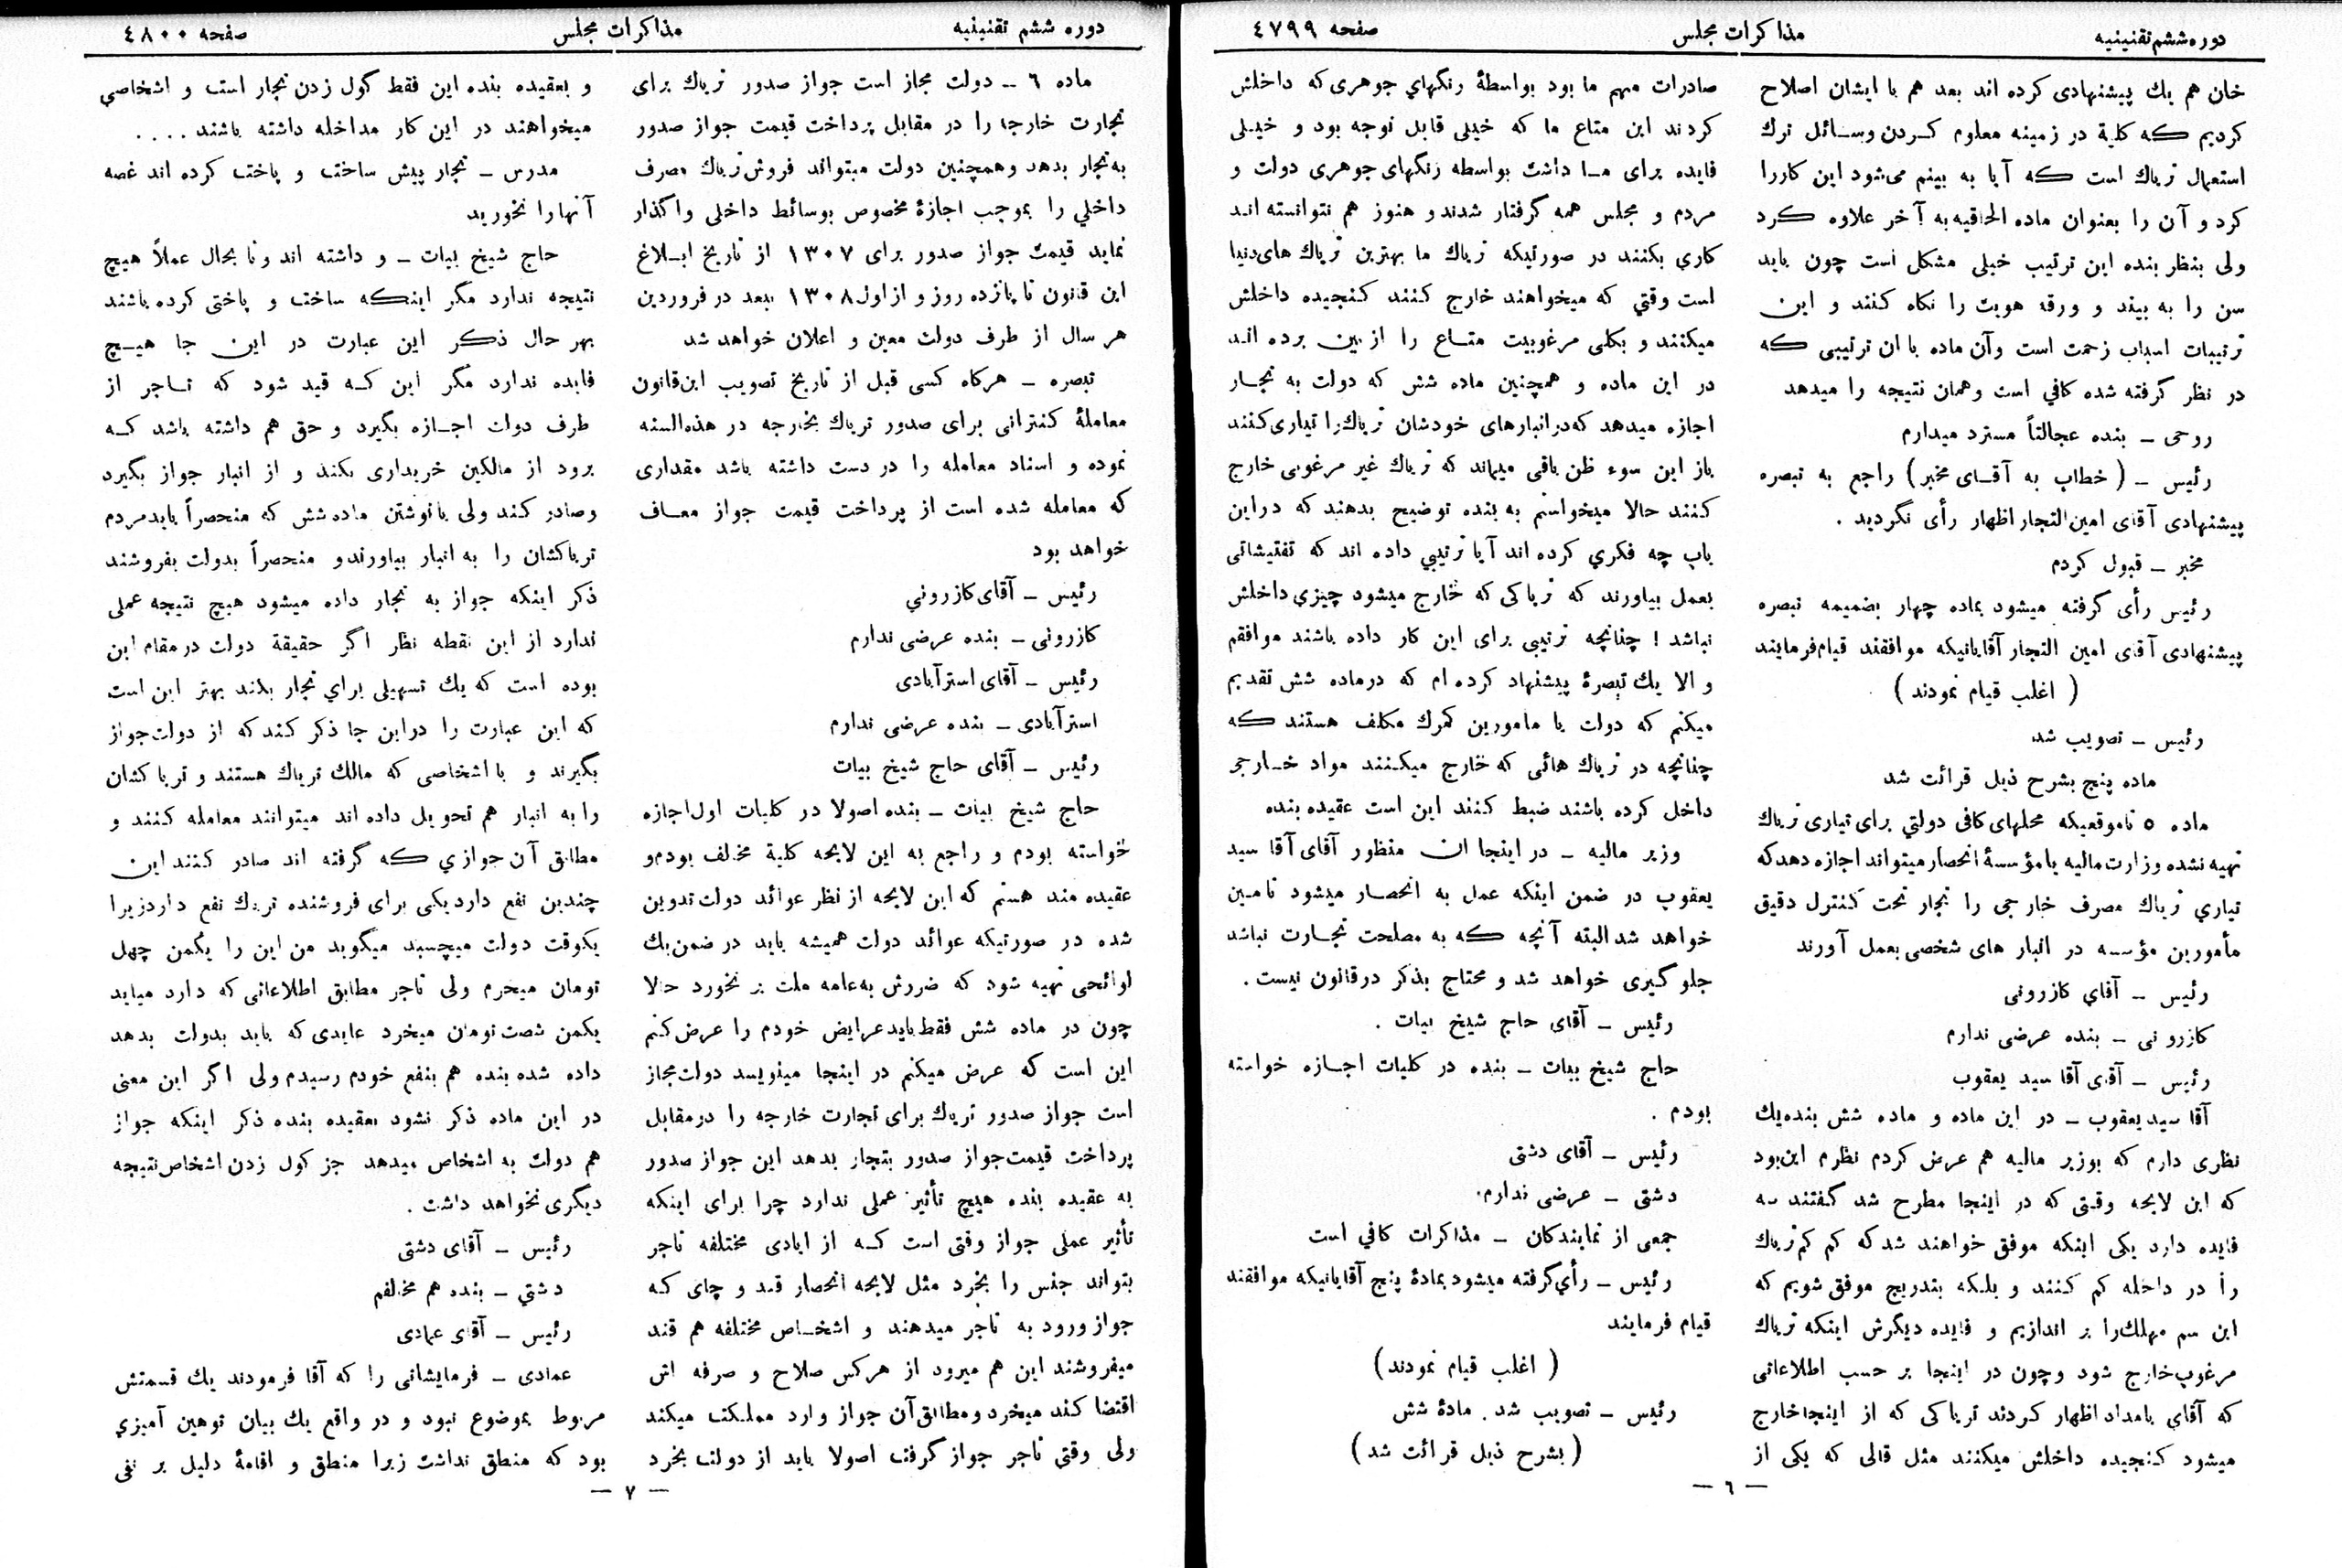 دوره ششم تقنینیه
مذاکرات مجلس
صفحه ٤٧٩٩
خان هم یك پیشنهادی کرده اند بعد هم با ایشان اصلاح
کردیم که کلیة در زمینه معلوم کردن وسائل ترك
استعمال تریاك است که آیا به بینم می‌شود این کاررا
کرد و آن را بعنوان ماده الحاقیه به آخر علاوه کرد
ولی بنظر بنده این ترتیب خیلی مشکل است چون باید
سن را به بیند و ورقه هویت را نگاه کنند و این
ترتیبات اسباب زحمت است وآن ماده با ان ترتیبی که
در نظر گرفته شده کافی است وهمان نتیجه را میدهد
روحی ــ بنده عجالتاً مسترد میدارم
رئیس ــ ( خطاب به آقای مخبر) راجع به تبصره
پیشنهادی آقای امین‌التجار اظهار رأی نگردید .
مخبر ــ قبول کردم
رئیس رأی گرفته میشود بماده چهار بضمیمه تبصره
پیشنهادی آقای امین التجار آقایانیکه موافقند قیام‌فرمایند
( اغلب قیام نمودند )
رئیس ــ تصویب شد
ماده پنج بشرح ذیل قرائت شد
ماده ٥ تاموقعیکه محلهای کافی دولتي برای تیاری تریاك
تهیه نشده وزارت‌مالیه یا مؤسسهٔ انحصار میتواند اجازه دهدکه
تیاري تریاك مصرف خارجی را تجار تحت کنترل دقیق
مأمورین مؤسسه در انبار های شخصی بعمل آورند
رئیس ــ آقاي کازرونی
کازرونی ــ بنده عرضی ندارم
رئیس ــ آقای آقا سید یعقوب
آقا سیدیعقوب ــ در این ماده و ماده شش بنده‌یك
نظری دارم که بوزیر مالیه هم عرض کردم نظرم این‌بود
که این لایحه وقتی که در اینجا مطرح شد گفتند سه
فایده دارد یکی اینکه موفق خواهند شدکه کم کم تریاك
را در داخله کم کنند و بلکه بتدریج موفق شویم که
این سم مهلك‌را بر اندازیم و فایده دیگرش اینکه تریاك
مرغوب‌خارج شود وچون در اینجا بر حسب اطلاعاتی
که آقاي بامداد اظهار کردند تریاکی که از اینجاخارج
میشود کنجیده داخلش میکنند مثل قالی که یکی از
صادرات مهم ما بود بواسطهٔ رنگهاي جوهری‌که داخلش
کردند این متاع ما که خیلی قابل توجه بود و خیلی
فایده برای ما داشت بواسطه رنگهای جوهری دولت و
مردم و مجلس همه گرفتار شدند و هنوز هم نتوانسته اند
کاري بکنند در صورتیکه تریاك ما بهترین تریاك های‌دنیا
است وقتي که میخواهند خارج کنند کنجیده داخلش
میکنند و بکلی مرغوبیت متاع را از بین برده اند
در این ماده و همچنین ماده شش که دولت به تجار
اجازه میدهد که‌درانبارهای خودشان تریاك‌را تیاری‌کنند
باز این سوء ظن باقی میماند که تریاك غیر مرغوبی خارج
کنند حالا میخواستم به بنده توضیح بدهند که دراین
باب چه فکري کرده اند آیا ترتیبي داده اند که تفتیشاتی
بعمل بیاورند که تریاکی که خارج میشود چیزي داخلش
نباشد ! چنانچه ترتیبی برای این کار داده باشند موافقم
و الا یك تبصرهٔ پیشنهاد کرده ام که درماده شش تقدیم
میکنم که دولت یا مأمورین گمرك مکلف هستند که
چنانچه در تریاك هائی که خارج میکنند مواد خارجی
داخل کرده باشند ضبط کنند این است عقیده بنده
وزیر مالیه ــ در اینجا ان منظور آقای آقا سید
یعقوب در ضمن اینکه عمل به انحصار میشود تامین
خواهد شد البته آنچه که به مصلحت تجارت نباشد
جلوگیری خواهد شد و محتاج بذکر درقانون نیست .
رئیس ــ آقای حاج شیخ بیات .
حاج شیخ بیات ــ بنده در کلیات اجازه خواسته
بودم .
رئیس ــ آقای دشتی
دشتی ــ عرضی ندارم.
جمعی از نمایندکان ــ مذاکرات کافي است
رئیس ــ رأي‌گرفته میشود بمادهٔ پنج آقایانیکه موافقند
قیام فرمایند
( اغلب قیام نمودند)
رئیس ــ تصویب شد. مادهٔ شش
( بشرح ذیل قرائت شد )
— ٦ —
دوره ششم تقنینیه
مذاکرات مجلس
صفحه ٤٨٠٠
ماده ٦ ــ دولت مجاز است جواز صدور تریاك برای
تجارت خارجه را در مقابل پرداخت قیمت جواز صدور
به‌تجار بدهد وهمچنین دولت میتواند فروش‌تریاك مصرف
داخلي را بموجب اجازهٔ مخصوص بوسائط داخلی واگذار
نماید قیمت جواز صدور برای ١٣٠٧ از تاریخ ابلاغ
این قانون تا پانزده روز و از اول ١٣٠٨ ببعد در فروردین
هر سال از طرف دولت معین و اعلان خواهد شد
تبصره ــ هرکاه کسی قبل از تاریخ تصویب این‌قانون
معاملهٔ کنتراتی برای صدور تریاك بخارجه در هذه‌السنه
نموده و اسناد معامله را در دست داشته باشد مقداری
که معامله شده است از پرداخت قیمت جواز معاف
خواهد بود
رئیس ــ آقای کازروني
کازرونی ــ بنده عرضی ندارم
رئیس ــ آقای استرآبادی
استرآبادی ــ بنده عرضی ندارم
رئیس ــ آقای حاج شیخ بیات
حاج شیخ بیات ــ بنده اصولا در کلیات اول‌اجازه
خواسته بودم و راجع به این لایحه کلیة مخالف بودم‌و
عقیده مند هستم که این لایحه از نظر عوائد دولت تدوین
شده در صورتیکه عوائد دولت همیشه باید در ضمن‌یك
لوائحی تهیه شود که ضررش به‌عامه ملت بر نخورد حالا
چون در ماده شش فقط باید عرایض خودم را عرض کنم
این است که عرض میکنم در اینجا مینویسد دولت‌مجاز
است جواز صدور تریاك برای تجارت خارجه را درمقابل
پرداخت قیمت‌جواز صدور بتجار بدهد این جواز صدور
به عقیده بنده هیچ تأثیر عملی ندارد چرا برای اینکه
تأثیر عملی جواز وقتی است که از ایادی مختلفه تاجر
بتواند جنس را بخرد مثل لایحه انحصار قند و چای که
جواز ورود به تاجر میدهند و اشخاص مختلفه هم قند
میفروشند این هم میرود از هرکس صلاح و صرفه اش
اقتضا کند میخرد ومطابق‌آن جواز وارد مملکت میکند
ولی وقتی تاجر جواز گرفت اصولا باید از دولت بخرد
و بعقیده بنده این فقط گول زدن تجار است و اشخاصي
میخواهند در این کار مداخله داشته باشند . . . .
مدرس ــ تجار پیش ساخت و پاخت کرده اند غصه
آنهارا نخورید
حاج شیخ بیات ــ و داشته اند وتا بحال عملاً هیچ
نتیجه ندارد مگر اینکه ساخت و پاختی کرده باشند
بهر حال ذکر این عبارت در این جا هیچ
فایده ندارد مگر این که قید شود که تاجر از
طرف دولت اجازه بگیرد و حق هم داشته باشد که
برود از مالکین خریداری بکند و از انبار جواز بگیرد
وصادر کند ولی با نوشتن ماده‌شش که منحصراً بایدمردم
تریاکشان را به انبار بیاورندو منحصراً بدولت بفروشند
ذکر اینکه جواز به تجار داده میشود هیچ نتیجه عملی
ندارد از این نقطه نظر اگر حقیقة دولت درمقام این
بوده است که یك تسهیلی براي تجار بکند بهتر این است
که این عبارت را دراین جا ذکر کندکه از دولت‌جواز
بگیرند و با اشخاصی که مالك تریاك هستند و تریاکشان
را به انبار هم تحویل داده اند میتوانند معامله کنند و
مطابق آن جوازي که گرفته اند صادر کنند این
چندین نفع دارد یکی برای فروشنده تریاك نفع داردزیرا
یکوقت دولت میچسبد میگوید من این را یکمن چهل
تومان میخرم ولی تاجر مطابق اطلاعاتی که دارد میاید
یکمن شصت تومان میخرد عایدی که باید بدولت بدهد
داده شده بنده هم بنفع خودم رسیدم ولی اگر این معنی
در این ماده ذکر نشود بعقیده بنده ذکر اینکه جواز
هم دولت به اشخاص میدهد جز گول زدن اشخاص نتیجه
دیگری نخواهد داشت .
رئیس ــ آقای دشتی
دشتي ــ بنده هم مخالفم
رئیس ــ آقای عمادی
عمادی ــ فرمایشاتی را که آقا فرمودند یك قسمتش
مربوط بموضوع نبود و در واقع یك بیان توهین آمیزي
بود که منطق نداشت زیرا منطق و اقامهٔ دلیل بر نفی
— ٧ —